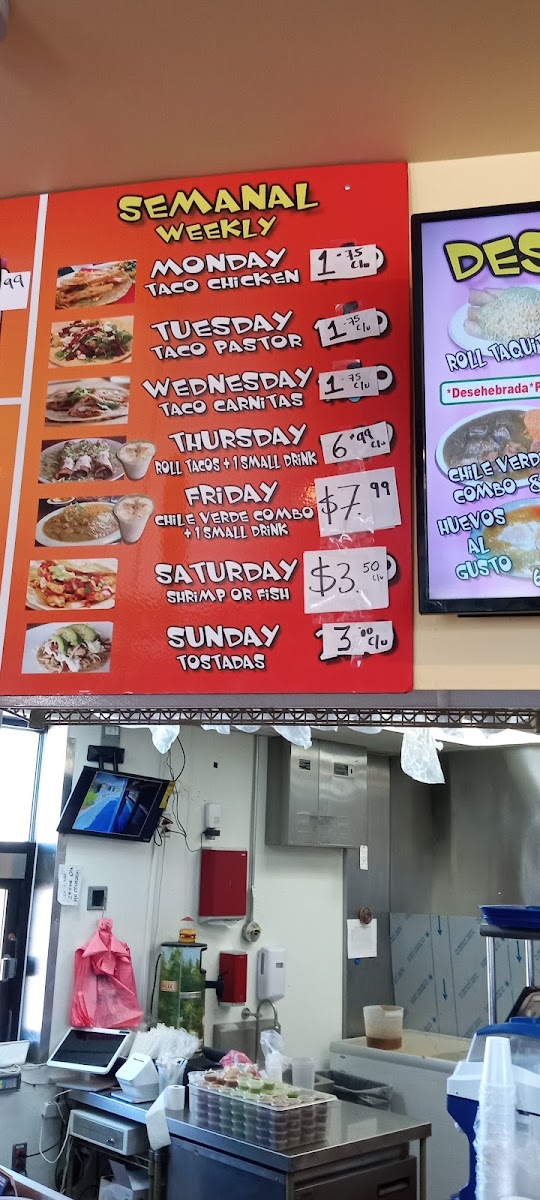 SEMANAL
WEEKLY
MONDAY
TACO CHICKEN
1.75 C/u
TUESDAY
TACO PASTOR
1.75 C/u
WEDNESDAY
TACO CARNITAS
1.75 C/u
THURSDAY
ROLL TACOS + 1 SMALL DRINK
6.99 C/u
FRIDAY
CHILE VERDE COMBO
+ 1 SMALL DRINK
$7.99
SATURDAY
SHRIMP OR FISH
$3.50 C/u
SUNDAY
TOSTADAS
3.00 C/u
99
DES
ROLL TAQUI
*Desehebrada*P
CHILE VERD
COMBO &
HUEVOS
AL
GUSTO
6